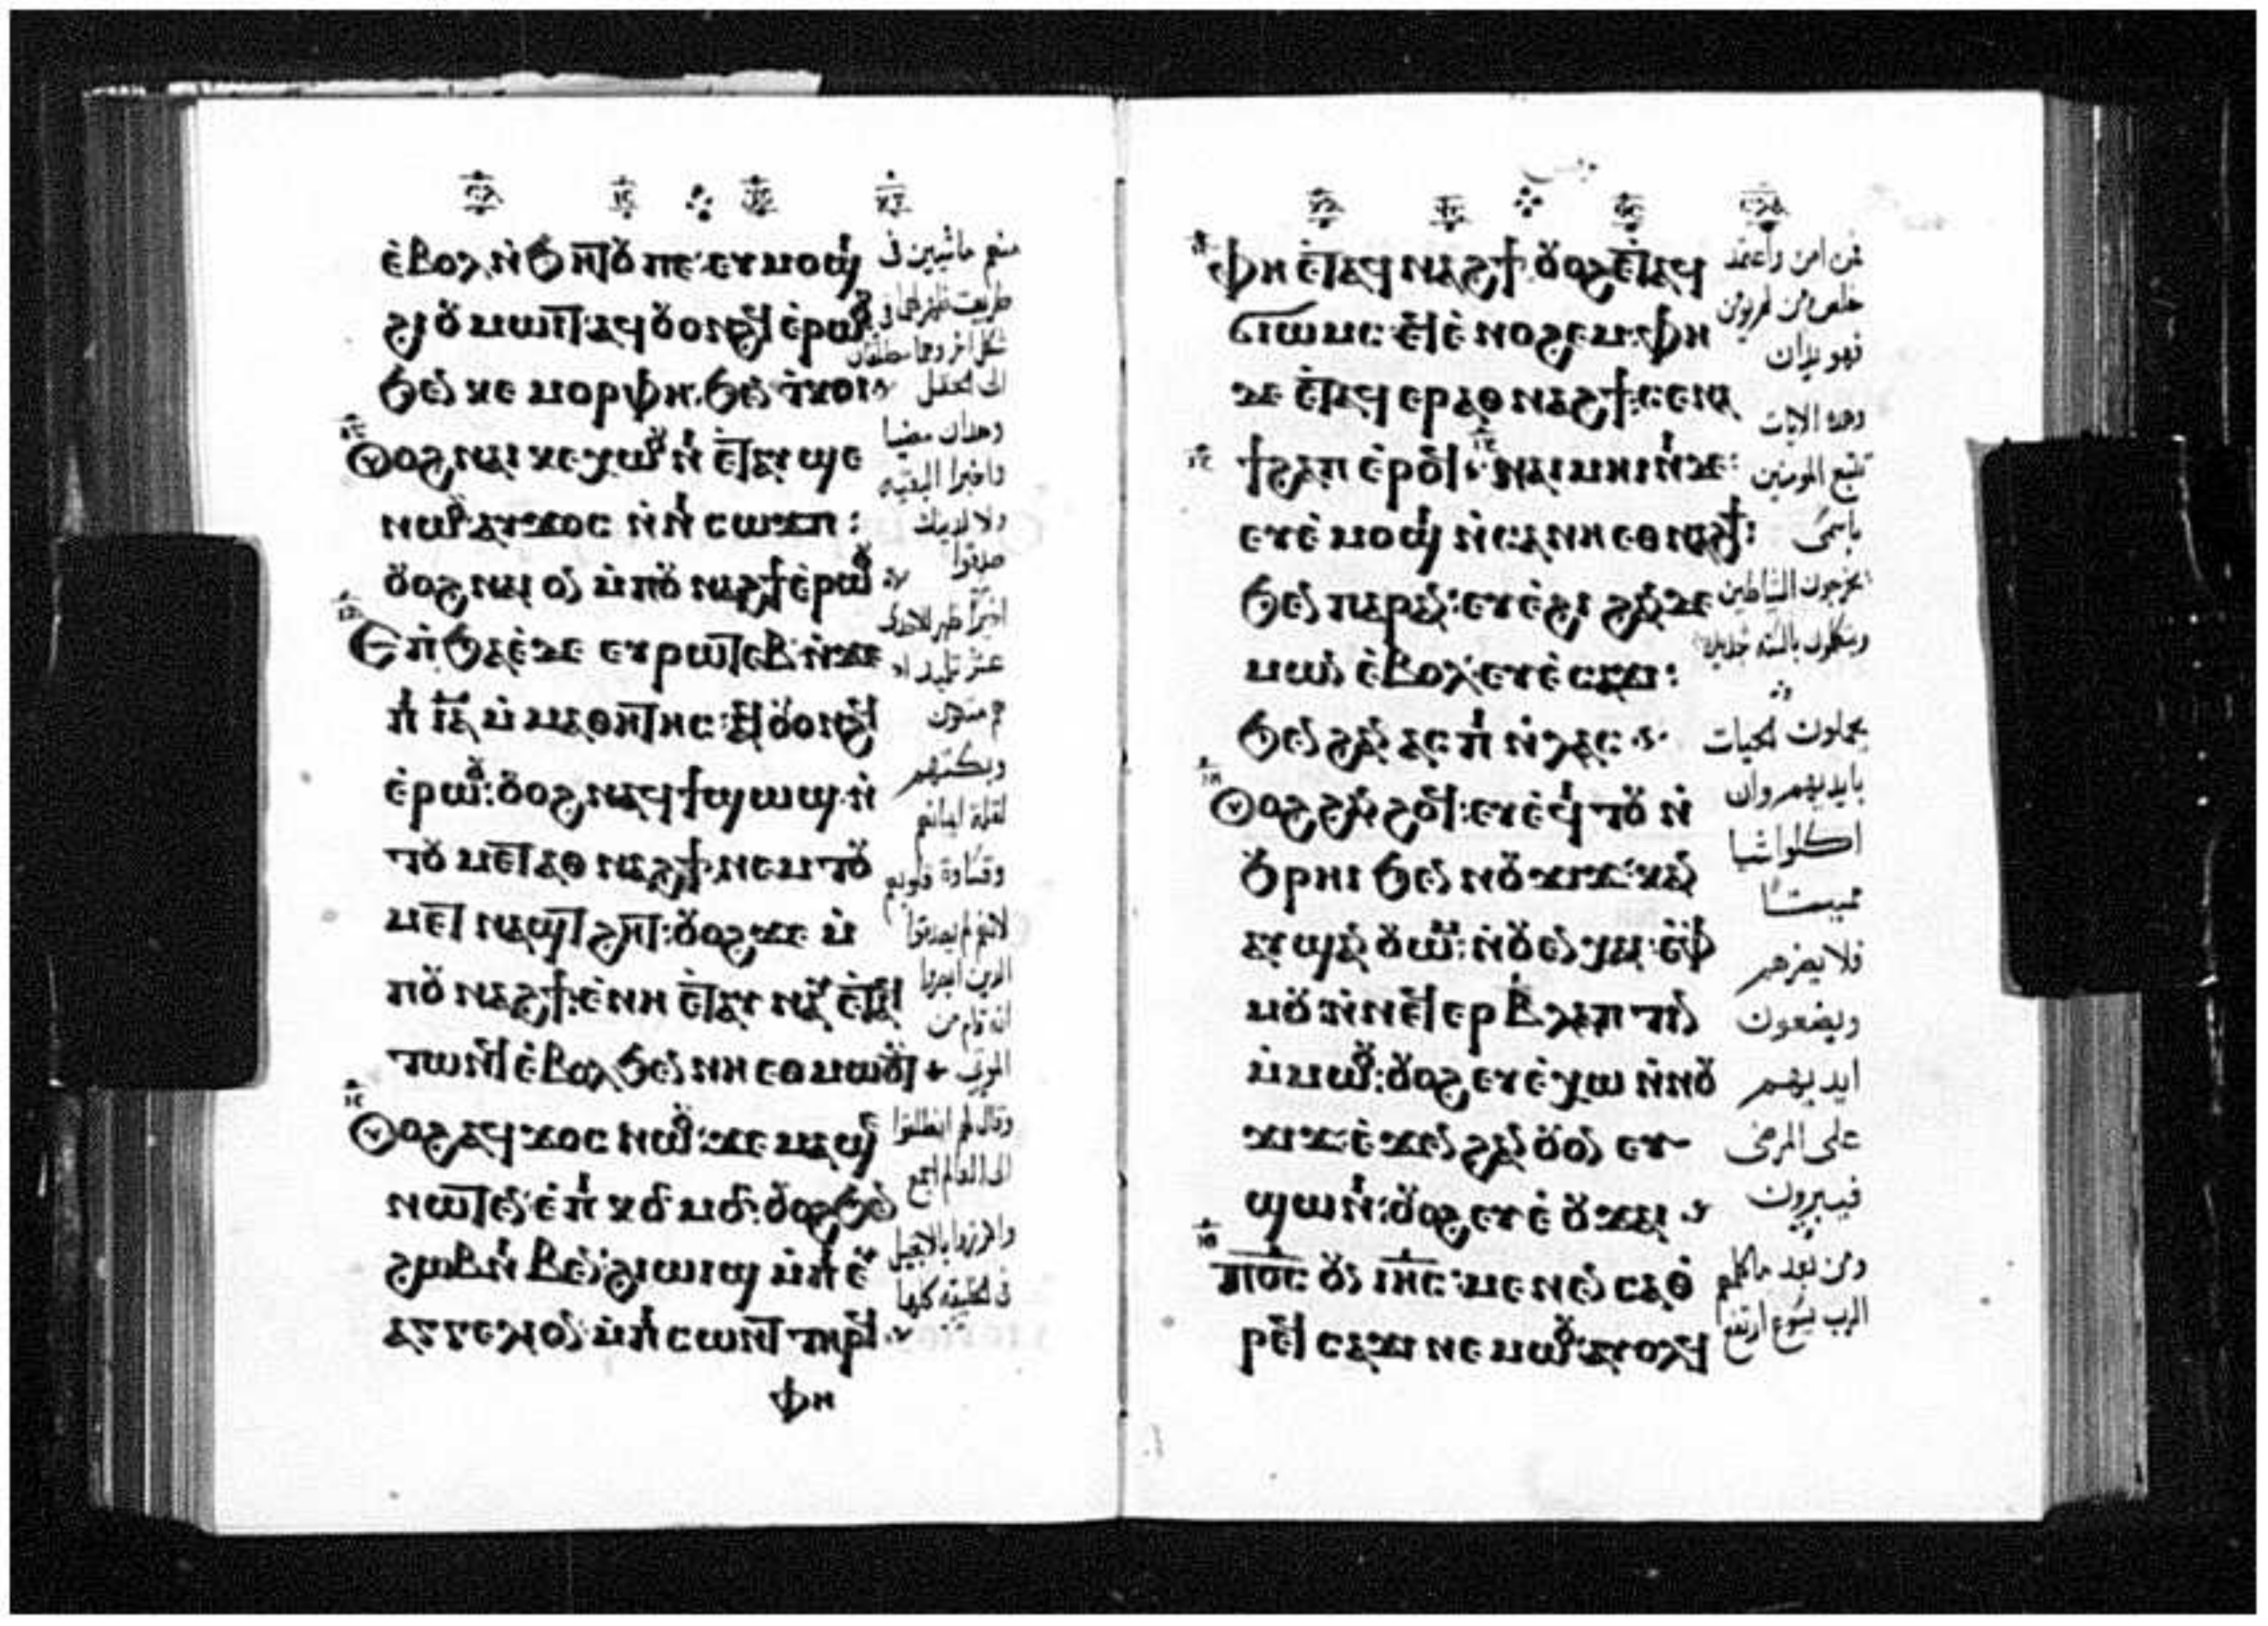 ⲉⲃⲟⲗ ⲛϧⲏⲧⲟⲩ ⲡⲉ ⲉⲩⲙⲟϣⲓ
ϩⲓ ⲟⲩⲙⲱⲓⲧ: ⲁϥⲟⲩⲟⲛϩϥ ⲉⲣⲱⲟⲩ
ϧⲉⲛ ⲕⲉ ⲙⲟⲣⲫⲏ. ϧⲉⲛ ⲧⲕⲟⲓ
ⲟⲩⲟϩ ⲛⲁⲓ ⲕⲉⲭⲱⲟⲩⲛⲓ ⲉⲧⲁⲩϣⲉ
ⲛⲱⲟⲩ ⲁⲩϫⲟⲥ ⲛⲛⲓ ⲥⲱϫⲡ:
ⲟⲩⲟϩ ⲛⲁⲓ ⲟⲛ ⲙⲡⲟⲩ ⲛⲁϩϯ ⲉⲣⲱⲟⲩ
ⲉⲡϧⲁⲉ ⲇⲉ ⲉⲩⲣⲱⲧⲉⲃ ⲛϫⲉ
ⲡⲓ ⲓⲁ ⲙⲙⲁⲑⲏⲧⲏⲥ: ⲁϥⲟⲩⲟⲛϩϥ
ⲉⲣⲱⲟⲩ: ⲟⲩⲟϩ ⲛⲁϥϯϣⲱϣ ⲛ
ⲧⲟⲩⲙⲉⲧⲁⲑⲛⲁϩϯ ⲛⲉⲙ ⲧⲟⲩ
ⲙⲉⲧ ⲛⲁϣⲧϩⲏⲧ: ⲟⲩⲟϩ ϫⲉ ⲙ
ⲡⲟⲩ ⲛⲁϩϯ: ⲉⲛⲏ ⲉⲧⲁⲩ ⲛⲁⲩ ⲉⲧⲁϥ
ⲧⲱⲛϥ ⲉⲃⲟⲗ ϧⲉⲛ ⲛⲏ ⲉⲑⲙⲱⲟⲩⲧ
ⲟⲩⲟϩ ⲁϥϫⲟⲥ ⲛⲱⲟⲩ: ϫⲉ ⲙⲁϣⲉ
ⲛⲱⲧⲉⲛ ⲉⲡⲓ ⲕⲟⲥⲙⲟⲥ: ⲟⲩⲟϩ
ϩⲓⲱⲓϣ ⲙⲡⲓ ⲉⲩ
ⲁⲅⲅⲉⲗⲓⲟⲛ ⲙⲡⲓ ⲥⲱⲛⲧ ⲧⲏⲣϥ
ⲫⲏ
منهم ماشيين فى
طريقه ظهر لهما فى
شكل اخر وهما منطلقان
الى الحقل
وهذان مضيا
واخبرا البقيه
ولا لذينك
صدقوا
اخيرا ظهر للاحدى
عشر تلميذ اذ
هم متكون
وبكتهم
لقلة ايمانهم
وقساوة قلوبهم
لانهم لم يصدقوا
الذين ابصروا
انه قام من
الموتى
وقال لهم انطلقوا
الى العالم اجمع
واكرزوا بالانجيل
فى الخليقه كلها
ⲫⲏ ⲉⲧⲁϥ ⲛⲁϩϯ ⲟⲩⲟϩ ⲉⲧⲁϥ
ϭⲓⲱⲙⲥ: ⲉϥⲉ ⲛⲟϩⲉⲙ: ⲫⲏ
ⲇⲉ ⲉⲧⲁϥ ⲉⲣⲁⲑⲛⲁϩϯ: ⲥⲉⲛⲁ
ϯϩⲁⲡ ⲉⲣⲟϥ ⲛⲁⲓ ⲙⲏⲓⲛⲓ ⲇⲉ:
ⲉⲩⲉ ⲙⲟϣⲓ ⲛⲥⲁ ⲛⲏ ⲉⲑⲛⲁϩϯ:
ϧⲉⲛ ⲡⲁⲣⲁⲛ: ⲉⲩⲉ ϩⲓ ϩⲁⲛ ⲇⲉ
ⲙⲱⲛ ⲉⲃⲟⲗ: ⲉⲩⲉ ⲥⲁϫⲓ:
ϧⲉⲛ ϩⲁⲛ ⲁⲥⲡⲓ ⲛⲗⲁⲥ
ⲟⲩⲟϩ ϩⲁⲛ ϩⲟϥ: ⲉⲩⲉ ϥⲓⲧⲟⲩ ⲛ
ϩⲣⲏⲓ ϧⲉⲛ ⲛⲟⲩ ϫⲓϫ: ⲕⲁⲛ
ⲁⲩϣⲁⲛ ⲟⲩⲱⲙ: ⲛⲟⲩⲉⲛⲭⲁⲓ ⲉϥ
ⲙⲟⲩ: ⲛⲛⲉϥ ⲉⲣ ⲃⲗⲁⲡⲧⲓⲛ
ⲙⲙⲱⲟⲩ: ⲟⲩⲟϩ ⲉⲩⲉ ⲭⲱ ⲛⲛⲟⲩ
ϫⲓϫ: ⲉϫⲉⲛ ϩⲁⲛ ⲟⲩⲟⲛ ⲉⲩ
ϣⲱⲛⲓ: ⲟⲩⲟϩ ⲉⲩⲉ ⲟⲩϫⲁⲓ
ⲡⲟⲥ ⲟⲩⲛ ⲓⲏⲥ: ⲙⲉⲛⲉⲛⲥⲁ ⲑ
ⲣⲉϥ ⲥⲁϫⲓ ⲛⲉⲙⲱⲟⲩ: ⲁⲩⲟⲗϥ
فمن امن واعتمد
خلص ومن لم يومن
فهو يدان
وهذه الايات
تتبع المومنين
باسمى
يخرجون الشياطين
ويتكلمون بالسنه جديده
يحملون الحيات
بايديهم وان
اكلوا شيا
مميتا
فلا يضرهم
ويضعون
ايديهم
على المرضى
فيبرون
ومن بعد ما كلمهم
الرب يسوع ارتفع